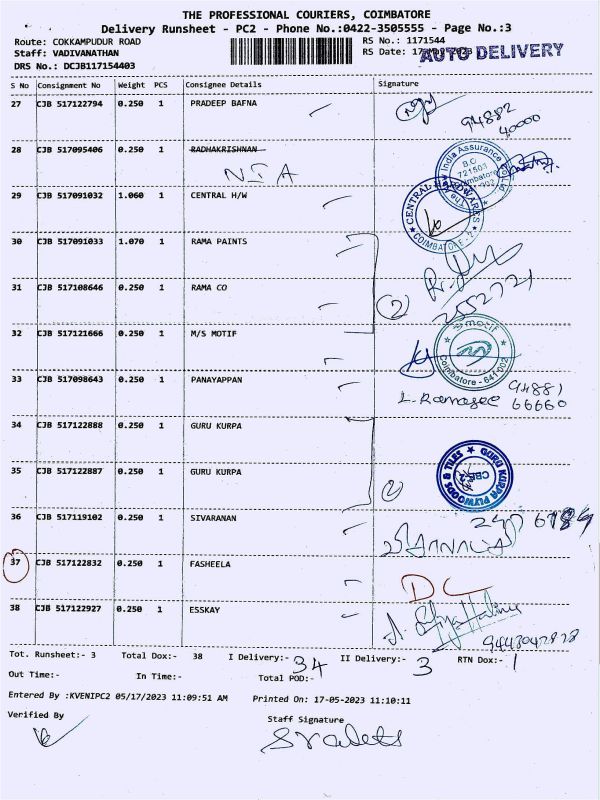 THE PROFESSIONAL COURIERS, COIMBATORE
Delivery Runsheet - PC2 - Phone No.:0422-3505555 - Page No.:3
Route: COKKAMPUDUR ROAD RS No.: 1171544
Staff: VADIVANATHAN RS Date: 17-May-2023 AUTO DELIVERY
DRS No.: DCJB117154403
S No Consignment No Weight PCS Consignee Details Signature
27 CJB 517122794 0.250 1 PRADEEP BAFNA
94882
40000
28 CJB 517095406 0.250 1 RADHAKRISHNAN
N I A
India Assurance
B.O.
721503
29 CJB 517091032 1.060 1 CENTRAL H/W
CENTRAL
COIMBATORE - 2
30 CJB 517091033 1.070 1 RAMA PAINTS
31 CJB 517108646 0.250 1 RAMA CO
2 2552721
32 CJB 517121666 0.250 1 M/S MOTIF
motif
Coimbatore - 641 002
33 CJB 517098643 0.250 1 PANAYAPPAN
94881
66660
34 CJB 517122888 0.250 1 GURU KURPA
35 CJB 517122887 0.250 1 GURU KURPA
GURU KURPA PLYWOODS & TILES
CBE
2
36 CJB 517119102 0.250 1 SIVARANAN
37 CJB 517122832 0.250 1 FASHEELA
DC
38 CJB 517122927 0.250 1 ESSKAY
Tot. Runsheet:- 3 Total Dox:- 38 I Delivery:- 34 II Delivery:- 3 RTN Dox:- 1
Out Time:- In Time:- Total POD:-
Entered By :KVENIPC2 05/17/2023 11:09:51 AM Printed On: 17-05-2023 11:10:11
Verified By Staff Signature